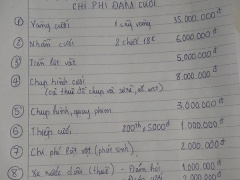 CHI PHÍ ĐÁM CƯỚI
① Vàng cưới 1 cây vàng 35.000.000đ
② Nhẫn cưới 2 chiếc 18k 6.000.000đ
③ 5.000.000đ
④ Chụp hình cưới 8.000.000đ
⑤ Chụp hình, quay phim 3.000.000đ
⑥ Thiệp cưới 200th, 5000đ 1.000.000đ
⑦ Chi phí lặt vặt (phát sinh) 2.000.000đ
⑧ Xe rước dâu (thuê) - Đám hỏi 1.000.000đ